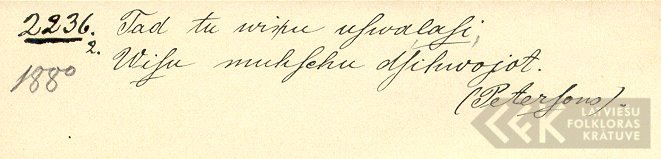 2236. Tad tu wiņu uswalasi,
2. Wisu muhschu dsihwojot.
1880
(Petersons).
LATVIEŠU
FOLKLORAS
KRĀTUVE